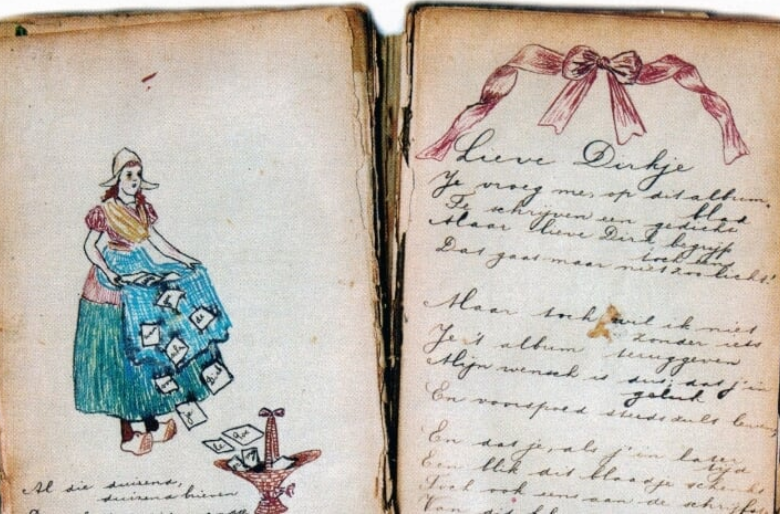 Al die duizend,
duizend brieven
Lieve Dirkje
Je vroeg me, op dit album
blad
Te schrijven een gedicht
Maar lieve Dirk, begrijp
toch eens
Dat gaat maar niet zoo licht.
Maar toch wil ik niet
zonder iets
Je 't album teruggeven
Mijn wensch is dus, dat j' in
geluk
En voorspoed steeds zult leven
En dat je, als j' in later
tijd
Een blik dit blaadje schenkt
Toch ook eens aan de schrijfster
Van dit